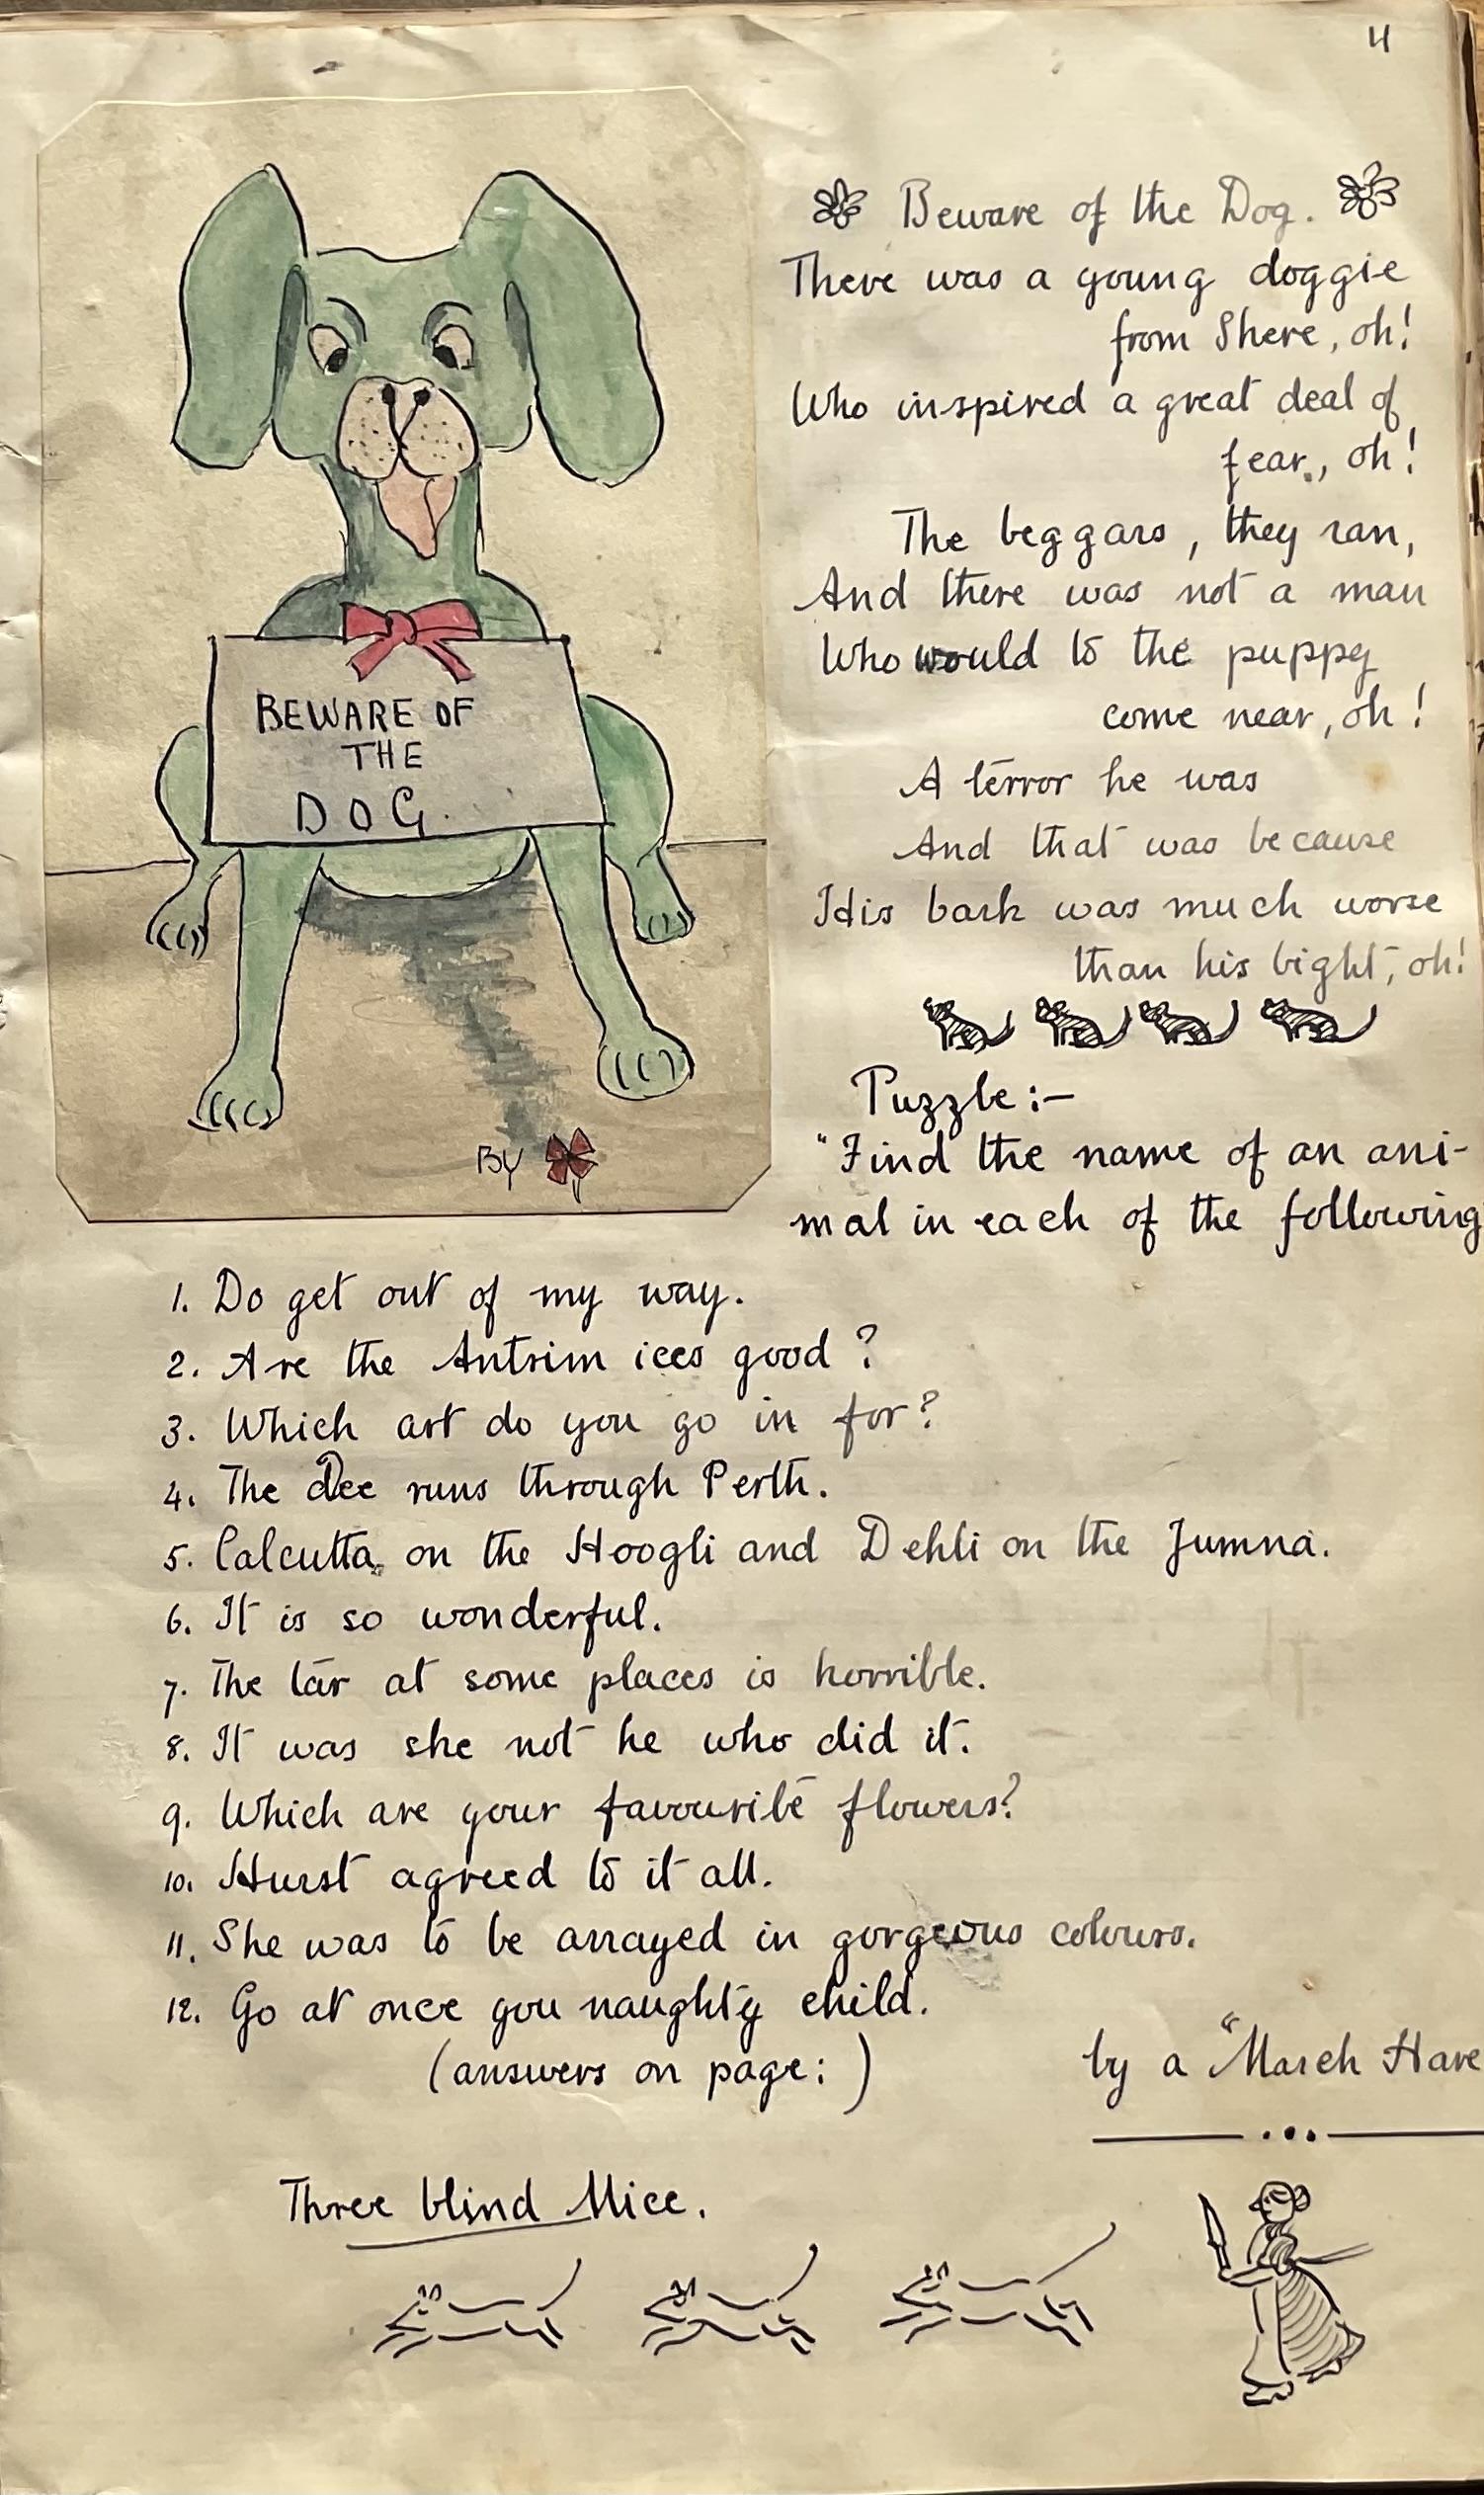 4
BEWARE OF
THE
DOG.
BY
Beware of the Dog.
There was a young doggie
from Shere, oh!
Who inspired a great deal of
fear, oh!
The beggars, they ran,
And there was not a man
Who would to the puppy
come near, oh!
A terror he was
And that was because
His bark was much worse
than his bight, oh!
Puzzle :-
"Find the name of an ani-
mal in each of the following
1. Do get out of my way.
2. Are the Antrim ices good?
3. Which art do you go in for?
4. The Dee runs through Perth.
5. Calcutta on the Hoogli and Dehli on the Jumna.
6. It is so wonderful.
7. The tar at some places is horrible.
8. It was she not he who did it.
9. Which are your favourite flowers?
10. Hurst agreed to it all.
11. She was to be arrayed in gorgeous colours.
12. Go at once you naughty child.
(answers on page: )
by a "March Hare
Three blind Mice.